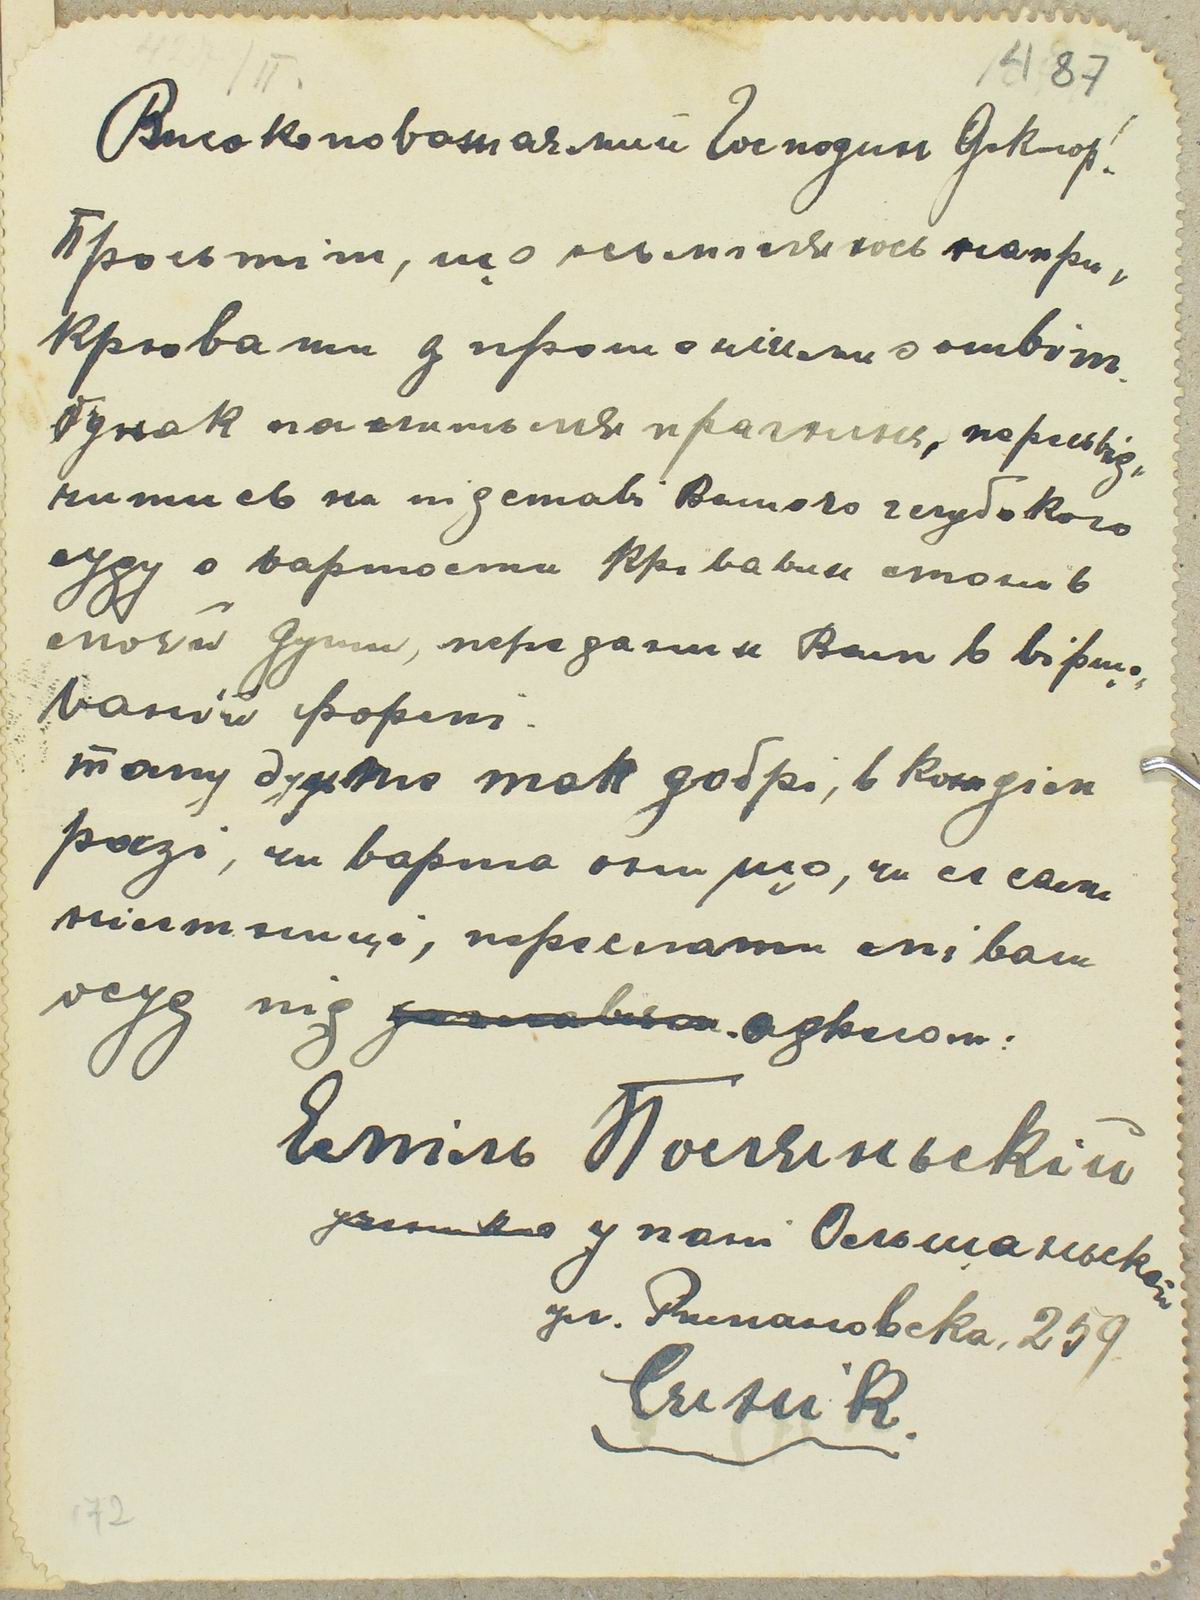 487
Високоповажаємий Господин Доктор!
Простіт, що осьміляюсь напри-
крювати з прошенієм о отвіт.
Однак по смитьля прагненя, пересвід-
читись на підставі Вашого глубокого
суду о вартости крівавих стонів
моєй душі, переданих Вам в віршо-
ваній формі.
тому будьте так добрі, в кождім
разі, чи варта они що, чи сі самі
нісетниці, переслати мі ваш
осуд під адресом:
Еміль Поляньскій
у пані Ольшаньской
ул. Римановска, 259
Сянік.
172